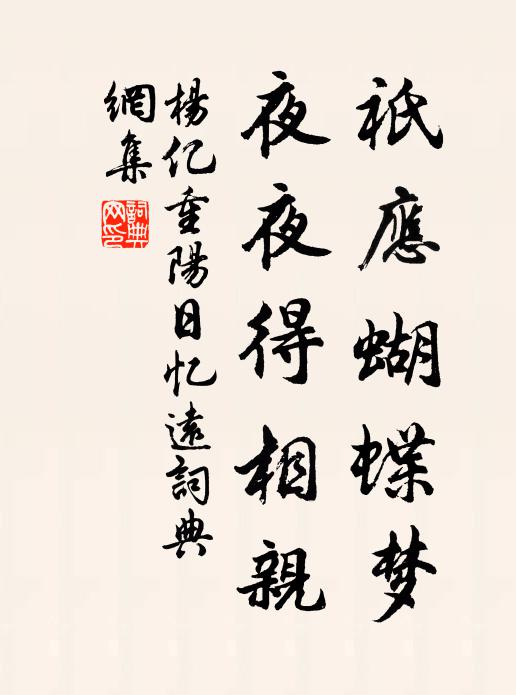 祇應蝴蝶梦
夜夜得相親
楊亿重陽日忆遠詞典
網集
詞典
网印